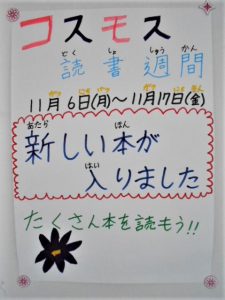 コスモス
読書週間
11月6日(月)～11月17日(金)
新しい本が
入りました
たくさん本を読もう!!